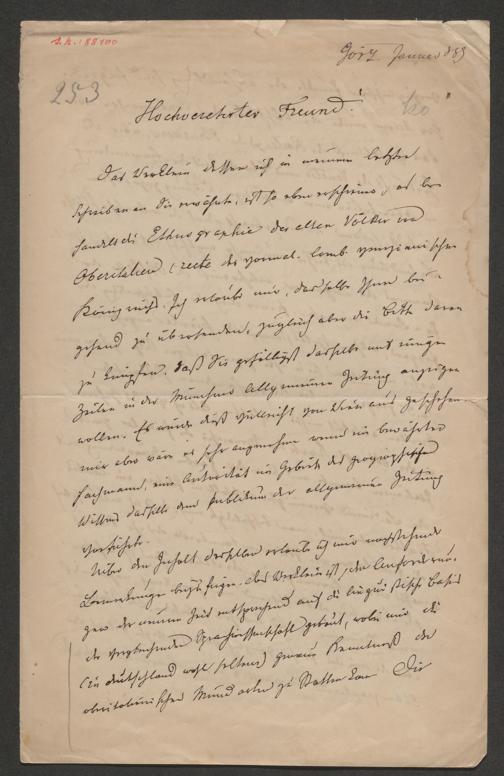 Görz Jänner 883
253
Hochverehrter Freund!
Das Werklein dessen ich in meinem letzten
Schreiben an Sie erwähnte, ist so eben erschienen, es be-
handelt die Ethnographie der alten Völker in
Oberitalien (recte des vormal. lomb. venezianischen
Königreichs. Ich erlaube mir, dasselbe Ihnen bei-
gehend zu übersenden, zugleich aber die Bitte daran
zu knüpfen, daß Sie gefälligst dasselbe mit einigen
Zeilen in der Münchner Allgemeinen Zeitung anzeigen
wollen. Es würde dieß vielleicht von Wien aus geschehen
mir aber wäre es sehr angenehm wenn ein bewährter
Fachmann, eine Autorität im Gebiete des geographischen
Wissens dasselbe dem Publikum der allgemeinen Zeitung
vorführte.
Über den Inhalt desselben erlaube ich mir nachstehende
Bemerkungen beizufügen. Das Werklein ist, den Anforderun-
gen der neuen Zeit entsprechend auf die linguistische Basis
der vergleichenden Sprachwissenschaft gebaut, wobei mir die
(in Deutschland wohl seltene) genaue Kenntniß der
oberitalienischen Mundarten zu Statten kam. Die